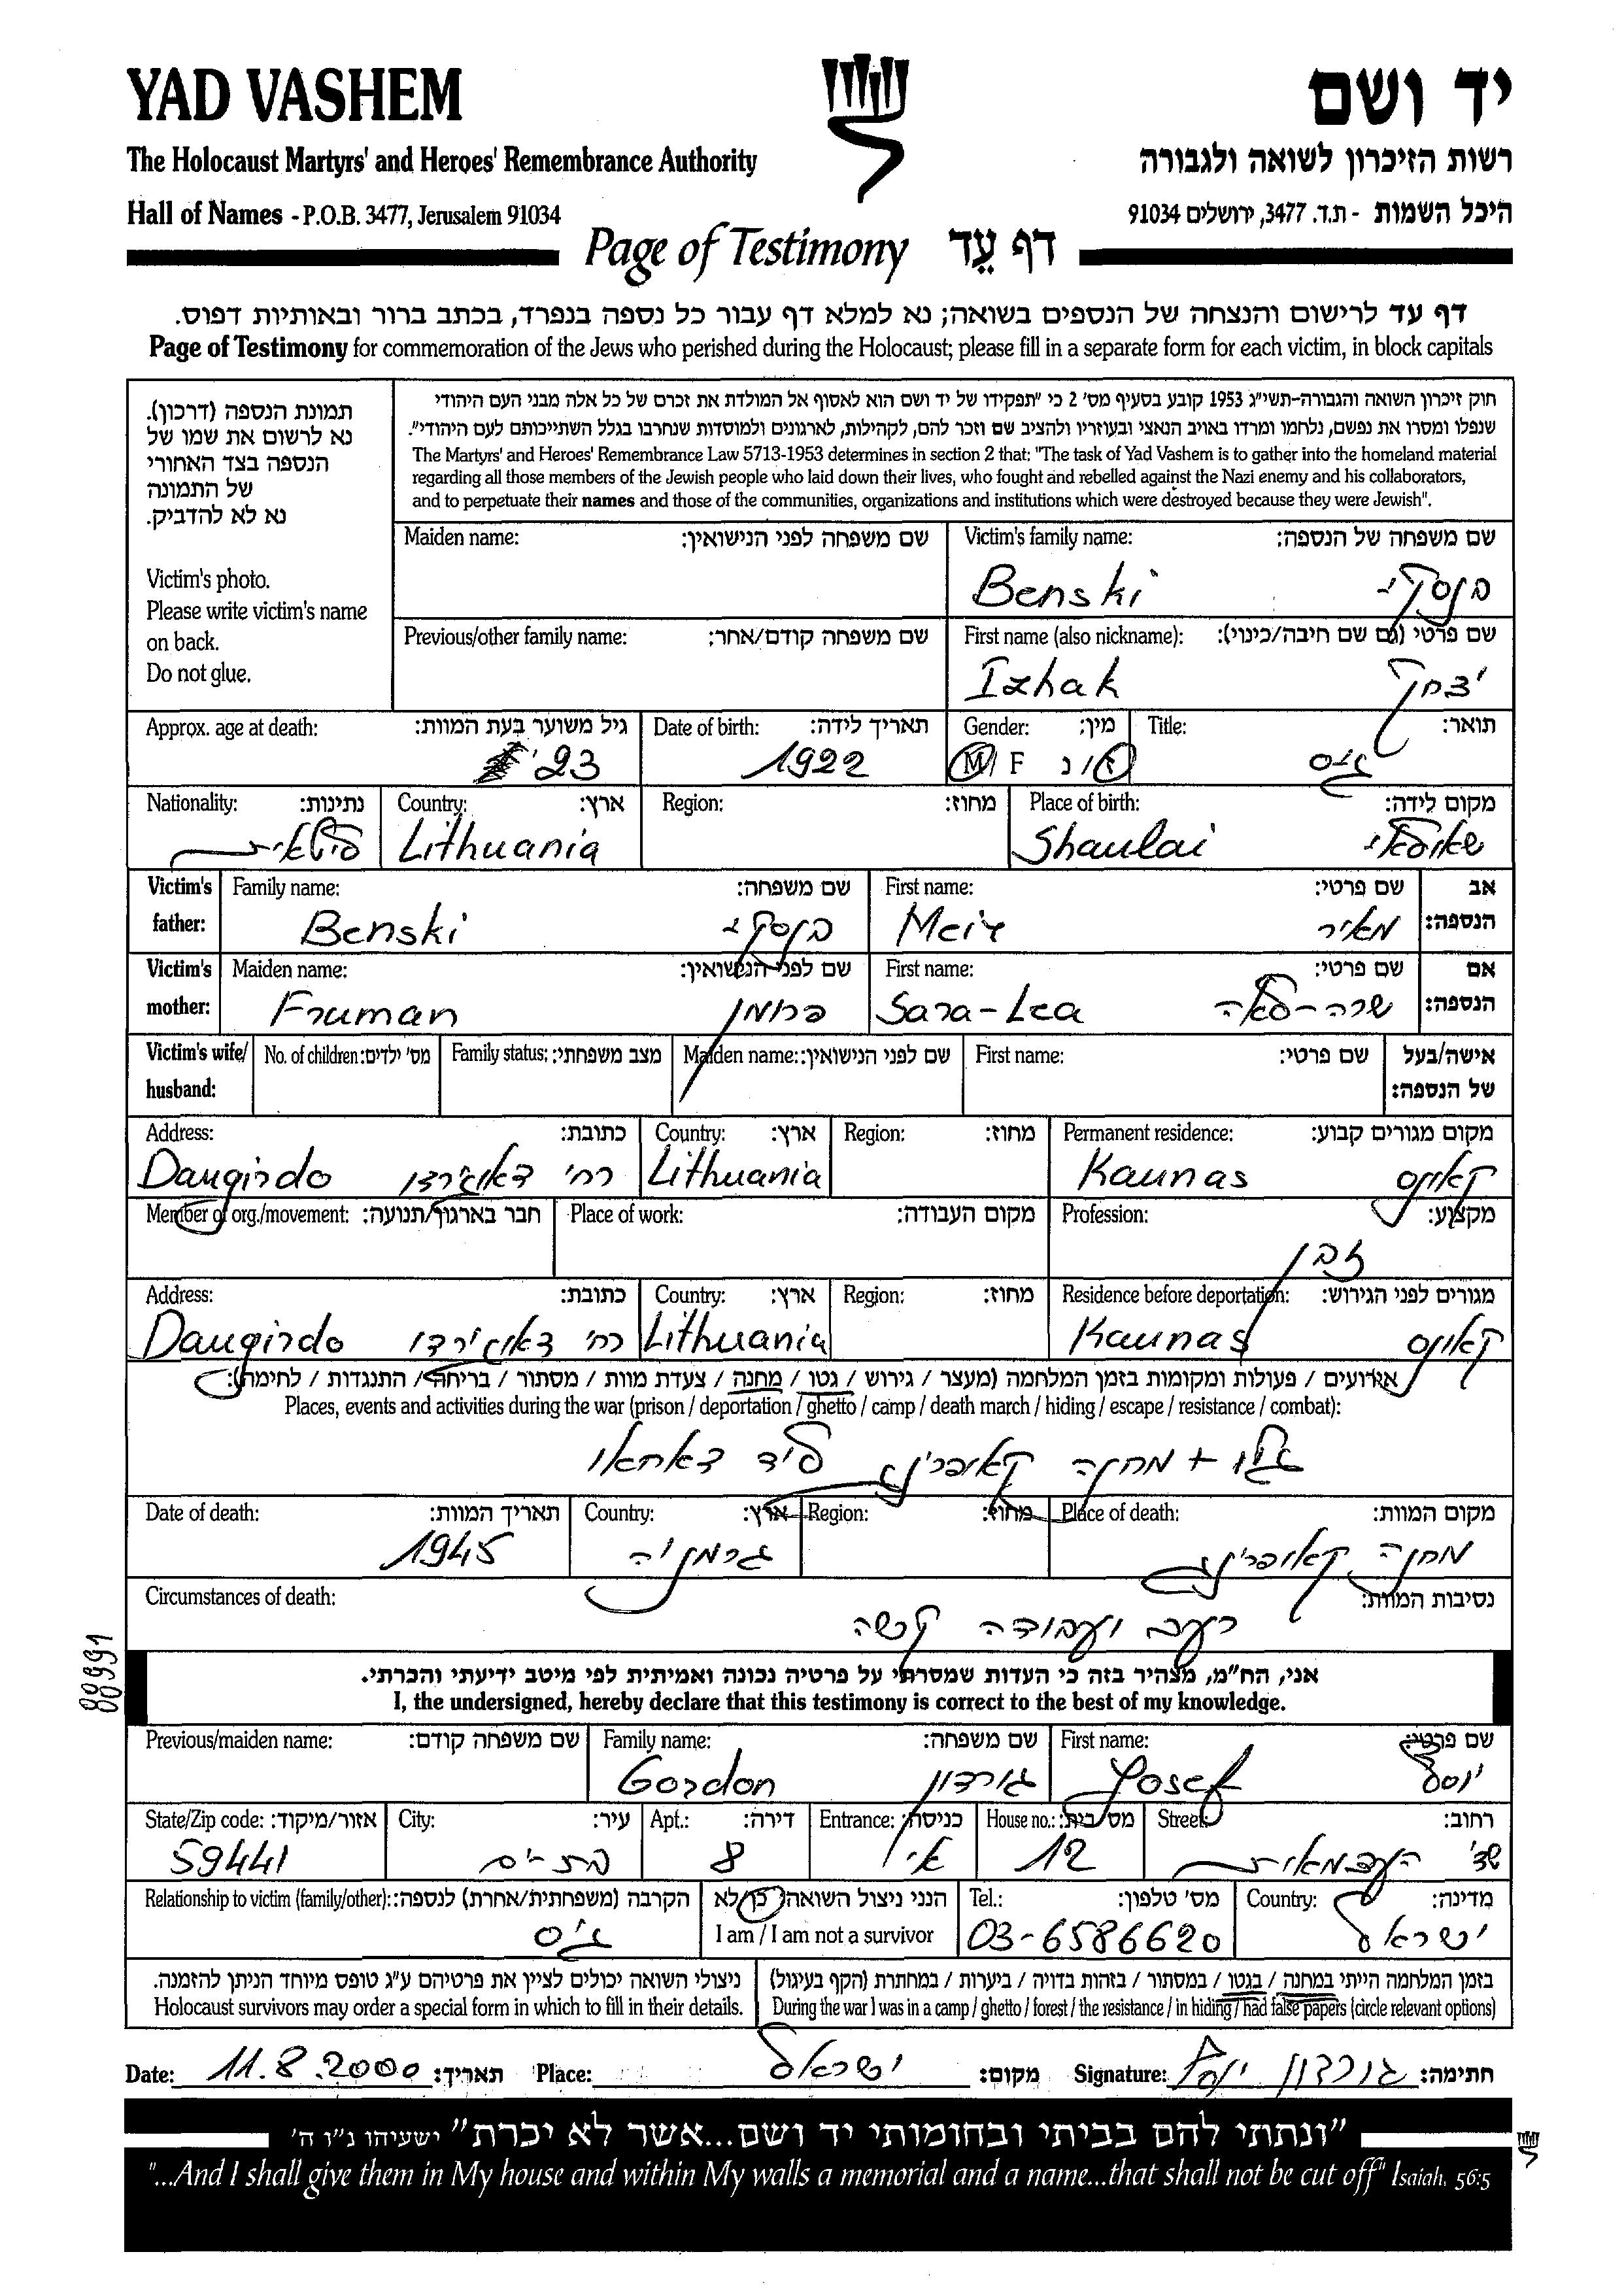 YAD VASHEM
יד ושם
The Holocaust Martyrs' and Heroes' Remembrance Authority
רשות הזיכרון לשואה ולגבורה
Hall of Names - P.O.B. 3477, Jerusalem 91034
היכל השמות - ת.ד. 3477, ירושלים 91034
Page of Testimony דף עֵד
דף עד לרישום והנצחה של הנספים בשואה; נא למלא דף עבור כל נספה בנפרד, בכתב ברור ובאותיות דפוס.
Page of Testimony for commemoration of the Jews who perished during the Holocaust; please fill in a separate form for each victim, in block capitals
תמונת הנספה (דרכון).
נא לרשום את שמו של
הנספה בצד האחורי
של התמונה
נא לא להדביק.
Victim's photo.
Please write victim's name
on back.
Do not glue.
חוק זיכרון השואה והגבורה-תשי"ג 1953 קובע בסעיף מס' 2 כי "תפקידו של יד ושם הוא לאסוף אל המולדת את זכרם של כל אלה מבני העם היהודי
שנפלו ומסרו את נפשם, נלחמו ומרדו באויב הנאצי ובעוזריו ולהציב שם וזכר להם, לקהילות, לארגונים ולמוסדות שנחרבו בגלל השתייכותם לעם היהודי".
The Martyrs' and Heroes' Remembrance Law 5713-1953 determines in section 2 that: "The task of Yad Vashem is to gather into the homeland material
regarding all those members of the Jewish people who laid down their lives, who fought and rebelled against the Nazi enemy and his collaborators,
and to perpetuate their names and those of the communities, organizations and institutions which were destroyed because they were Jewish".
Maiden name: שם משפחה לפני הנישואין:
Victim's family name: שם משפחה של הנספה:
Benski בנסקי
Previous/other family name: שם משפחה קודם/אחר:
First name (also nickname): שם פרטי (גם שם חיבה/כינוי):
Izhak יצחק
Approx. age at death: גיל משוער בעת המוות:
23
Date of birth: תאריך לידה:
1922
Gender: מין:
M / F ז / נ
Title: תואר:
גיס
Nationality: נתינות:
ליטאית
Country: ארץ:
Lithuania
Region: מחוז:
Place of birth: מקום לידה:
Shaulai שאולאי
Victim's father: אב הנספה:
Family name: שם משפחה:
Benski בנסקי
First name: שם פרטי:
Meir מאיר
Victim's mother: אם הנספה:
Maiden name: שם לפני הנישואין:
Fruman פרומן
First name: שם פרטי:
Sara-Lea שרה-לאה
Victim's wife/ husband: אישה/בעל של הנספה:
No. of children: מס' ילדים:
Family status: מצב משפחתי:
Maiden name: שם לפני הנישואין:
First name: שם פרטי:
Address: כתובת:
Daugirdo רח' דאוגירדו
Country: ארץ:
Lithuania
Region: מחוז:
Permanent residence: מקום מגורים קבוע:
Kaunas קאונס
Member of org./movement: חבר בארגון/תנועה:
Place of work: מקום העבודה:
Profession: מקצוע:
זבן
Address: כתובת:
Daugirdo רח' דאוגירדו
Country: ארץ:
Lithuania
Region: מחוז:
Residence before deportation: מגורים לפני הגירוש:
Kaunas קאונס
אירועים / פעולות ומקומות בזמן המלחמה (מעצר / גירוש / גטו / מחנה / צעדת מוות / מסתור / בריחה / התנגדות / לחימה):
Places, events and activities during the war (prison / deportation / ghetto / camp / death march / hiding / escape / resistance / combat):
גטו + מחנה קאופרינג ליד דאחאו
Date of death: תאריך המוות:
1945
Country: ארץ:
גרמניה
Region: מחוז:
Place of death: מקום המוות:
מחנה קאופרינג
Circumstances of death: נסיבות המוות:
רעב ועבודה קשה
88991
אני, הח"מ, מצהיר בזה כי העדות שמסרתי על פרטיה נכונה ואמיתית לפי מיטב ידיעתי והכרתי.
I, the undersigned, hereby declare that this testimony is correct to the best of my knowledge.
Previous/maiden name: שם משפחה קודם:
Family name: שם משפחה:
Gordon גורדון
First name: שם פרטי:
Yosef יוסף
State/Zip code: אזור/מיקוד:
59441
City: עיר:
בת-ים
Apt.: דירה:
8
Entrance: כניסה:
א'
House no.: מס' בית:
12
Street: רחוב:
שד' העצמאות
Relationship to victim (family/other): הקרבה (משפחתית/אחרת) לנספה:
גיס
הנני ניצול השואה: כן/לא
I am / I am not a survivor
Tel.: מס' טלפון:
03-6586620
Country: מדינה:
ישראל
ניצולי השואה יכולים לציין את פרטיהם ע"ג טופס מיוחד הניתן להזמנה.
Holocaust survivors may order a special form in which to fill in their details.
בזמן המלחמה הייתי במחנה / בגטו / במסתור / בזהות בדויה / ביערות / במחתרת (הקף בעיגול)
During the war I was in a camp / ghetto / forest / the resistance / in hiding / had false papers (circle relevant options)
Date: 11.8.2000 תאריך:
Place: ישראל מקום:
Signature: גורדון יוסף חתימה:
"ונתתי להם בביתי ובחומותי יד ושם...אשר לא יכרת" ישעיהו נ"ו ה'
"...And I shall give them in My house and within My walls a memorial and a name...that shall not be cut off" Isaiah, 56:5